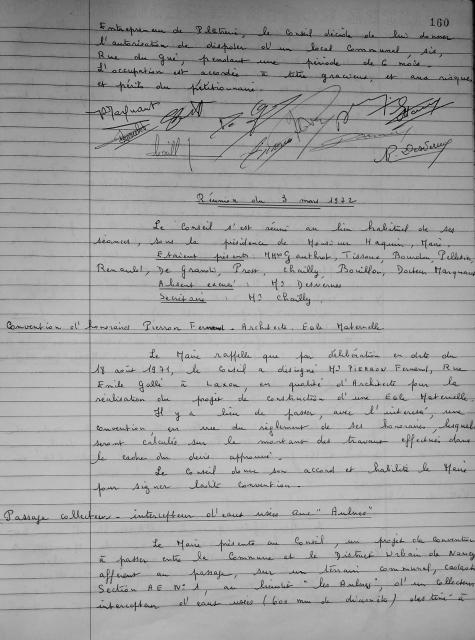 160
Entrepreneur de Plâtrerie, le Conseil décide de lui donner
l'autorisation de disposer d'un local Communal sis,
Rue du Gué, pendant une période de 6 mois.
L'occupation est accordée à titre gracieux, et aux risques
et périls du pétitionnaire.
Réunion du 3 mars 1972
Le Conseil s'est réuni au lieu habituel de ses
séances, sous la présidence de Monsieur Haquin, Maire.
Etaient présents : MMrs Gauthrot, Tissoux, Bourdon, Pelletier,
Renauld, De Granrut, Prost, Chailly, Bouillon, Docteur Marquant
Absent excusé : Mr Desvernes
Secrétaire : Mr Chailly.
Convention d'honoraires Pierron Fernand - Architecte Ecole Maternelle
Le Maire rappelle que par délibération en date du
18 août 1971, le Conseil a désigné Mr PIERRON Fernand, Rue
Emile Gallé à Laxou, en qualité d'Architecte pour la
réalisation du projet de construction d'une Ecole Maternelle.
Il y a lieu de passer, avec l'intéressé, une
convention, en vue du règlement de ses honoraires, lesquels
seront calculés sur le montant des travaux effectués dans
le cadre du devis approuvé.
Le Conseil donne son accord et habilite le Maire
pour signer ladite convention.
Passage collecteur - intercepteur d'eaux usées aux "Aulnes"
Le Maire présente au Conseil, un projet de Convention
à passer entre la Commune et le District Urbain de Nancy
afférent au passage, sur un terrain communal, cadastré
Section AE N° 1, au lieudit "les Aulnes", d'un collecteur
intercepteur d'eaux usées (600 mm de diamètre) destiné à